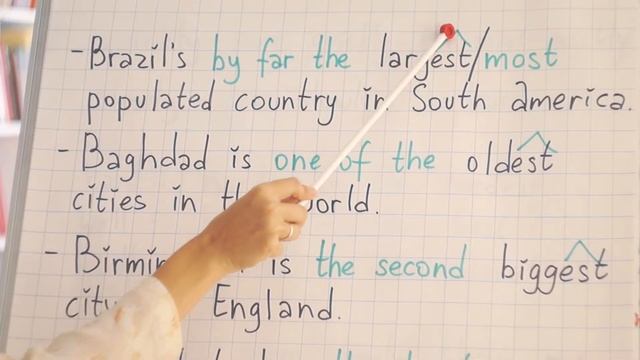 -Brazil's by far the largest/most
populated country in South america.
-Baghdad is one of the oldest
cities in the world.
- is the second biggest
city England.